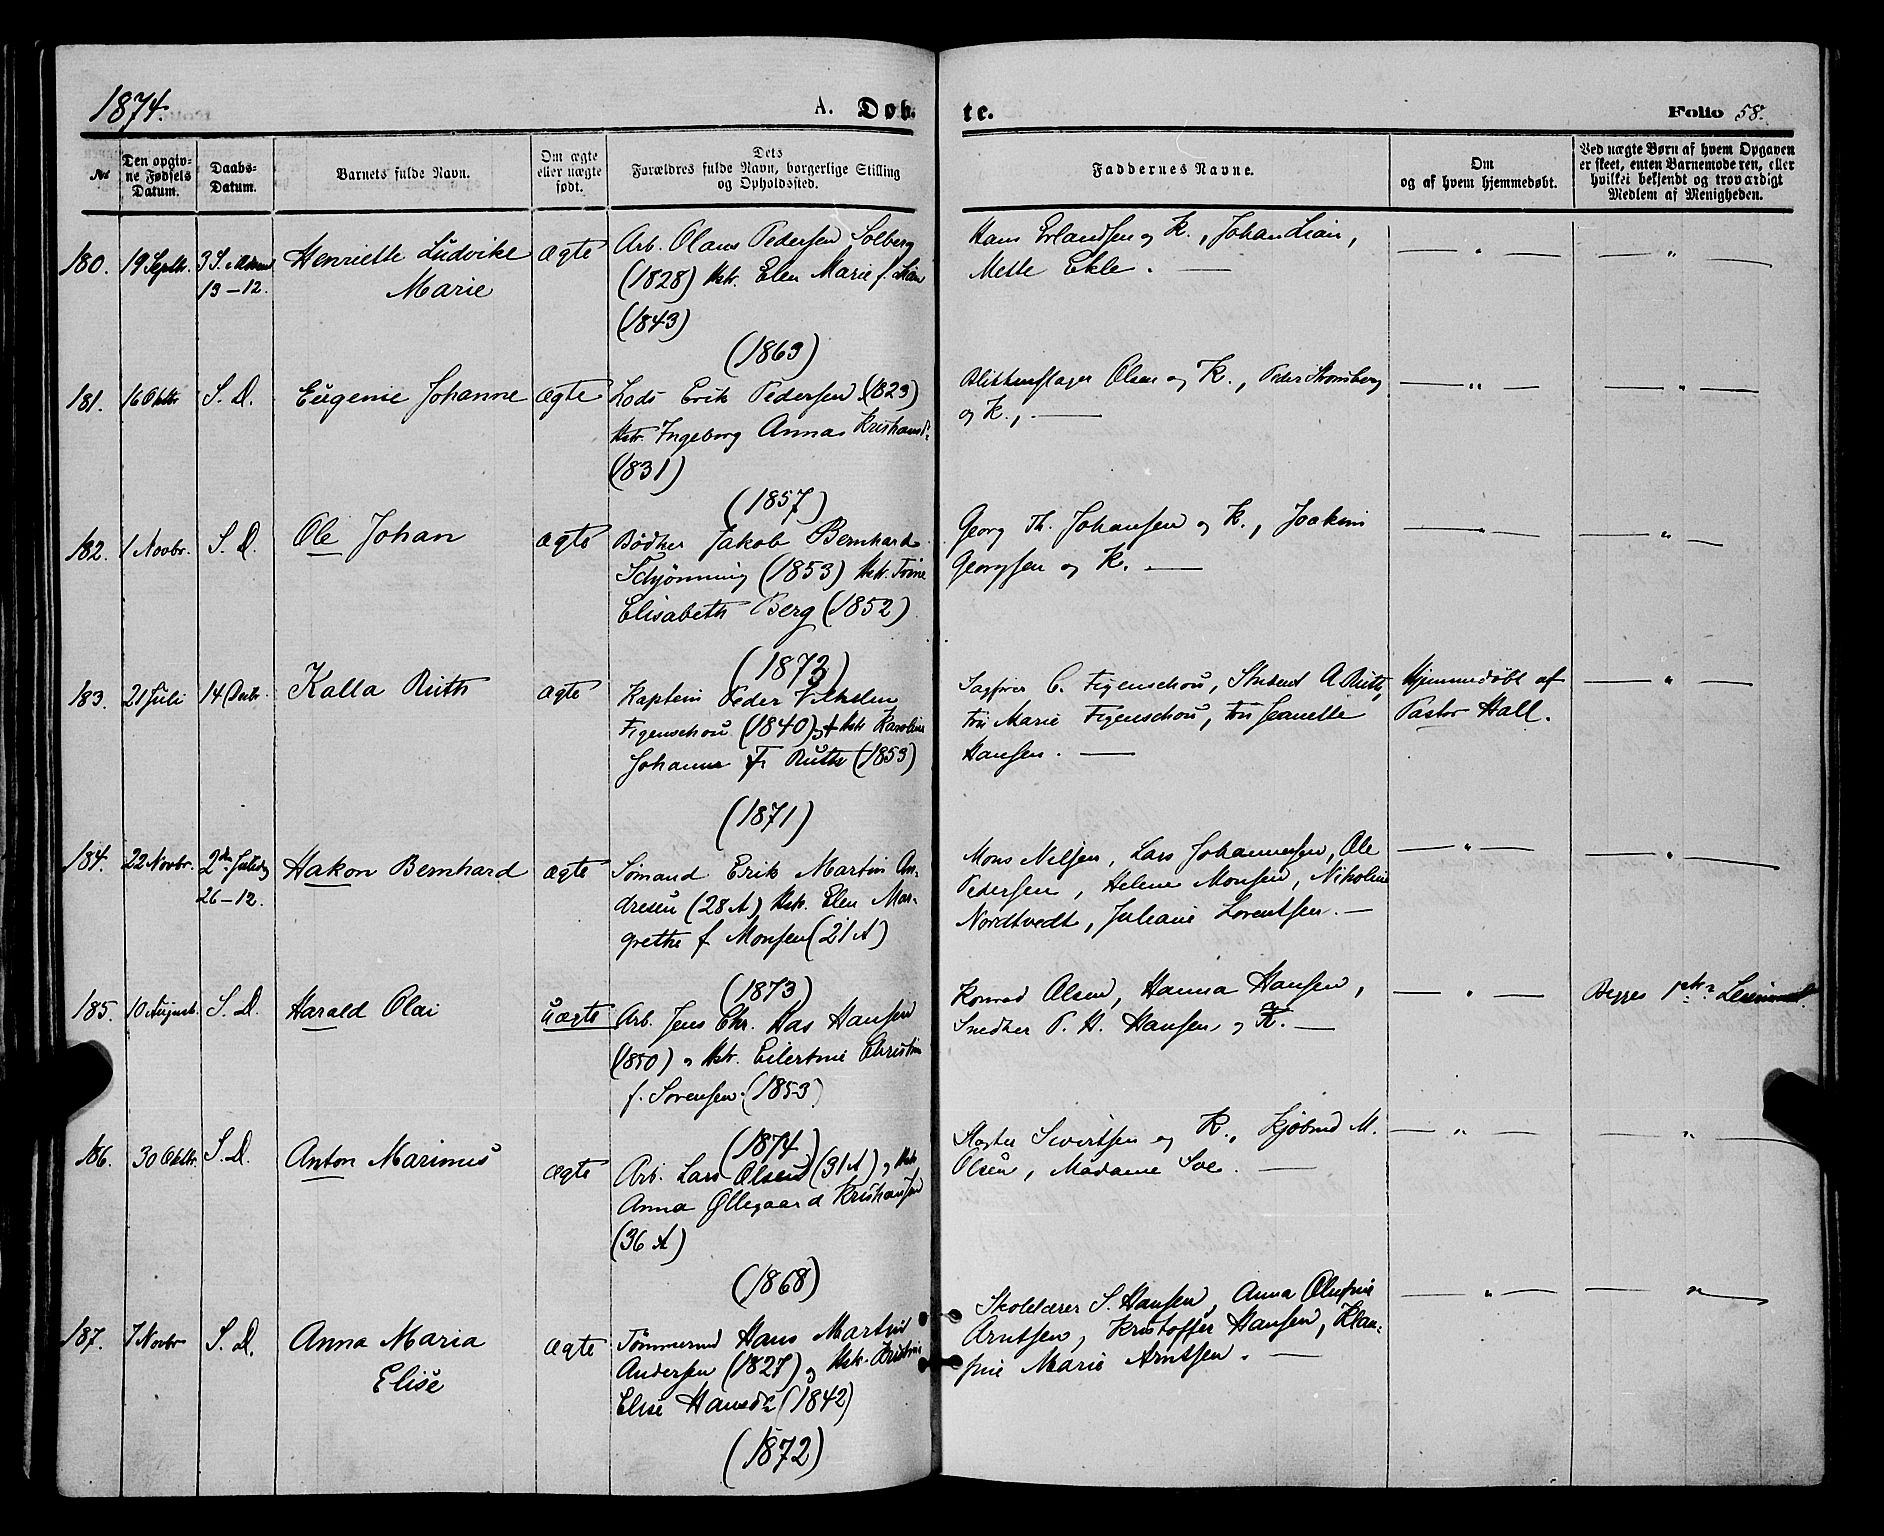 1874.
A. Døb-
te.
Folio 58.
№
Den opgiv-
ne Fødsels
Datum.
Daabs-
Datum.
Barnets fulde Navn.
Om ægte
eller uægte
født.
Dets
Forældres fulde Navn, borgerlige Stilling
og Opholdssted.
Faddernes Navne.
Om
og af hvem hjemmedøbt.
Ved uægte Børn af hvem Opgaven
er skeet, enten Barnemoderen, eller
hvilket bekjendt og troværdigt
Medlem af Menigheden.
180. 19 Septbr. 3 S. i Advent
13-12.
Henriette Ludvike
Marie
ægte
Arb. Olaus Pedersen Solberg
(1828) Hstr. Elen Marie f. Lian
(1843)
(1863)
Hans Erlandsen og K., Johan Lian,
Mette Ekle. —
— " —
— " —
181. 16 Oktbr S. D.
Eugenie Johanne
ægte
Lods Erik Pedersen (1823)
Hstr. Ingeborg Anna Kristiansd.
(1831)
(1857)
Blikkenslager Olsen og K., Peder Stromberg
og K., —
— " —
— " —
182. 1 Novbr. S. D.
Ole Johan
ægte
Bødker Jakob Bernhard
Schjønning (1853) Hstr. Trine
Elisabeth Berg (1852)
(1873)
Georg Th. Johansen og K., Joakim
Georgsen og K. —
— " —
— " —
183. 21 Juli 14 Decbr.
Kalla Ruth
ægte
Kaptein Peder Vilhelm
Figenschou (1840) og Hstr Karoline
Johanne F. Ruth (1853)
(1871)
Sagfører C. Figenschou, Student A Ruth,
Fru Marie Figenschou, Fru Jeanette
Hansen. —
Hjemmedøbt af
Pastor Hall.
— " —
184. 22 Novbr. 2den Juledag
26-12.
Hakon Bernhard
ægte
Sømand Erik Martin An-
dresen (28 A) Hstr. Elen Mar-
grethe f Monsen (21 A)
(1873)
Mons Nilsen, Lars Johannesen, Ole
Pedersen, Helene Monsen, Nikoline
Nordtvedt, Juliane Lorentsen. —
— " —
— " —
185. 10 August. S. D.
Harald Olai
uægte
Arb. Jens Chr. Has Hansen
(1850) og Hstr. Eilertine Christine
f. Sørensen (1853)
(1874)
Konrad Olsen, Hanna Hansen,
Snedker P. H. Hansen og K. —
— " —
Begges 1ste Leiermaal.
186. 30 Oktbr. S. D.
Anton Marinus
ægte
Arb. Lars Olsen (31 A) og Hstr
Anna Øllegaard Kristiansen
(36 A)
(1868)
Slagter Sivertsen og K., Kjøbmd M.
Olsen, Madame Soe. —
— " —
— " —
187. 7 Novbr S. D.
Anna Maria
Elise
ægte
Tømmermd Hans Martin
Andersen (1827) og Hstr. Kristine
Elise Hansdr (1842)
(1872)
Skolelærer S. Hansen, Anna Olufine
Arntsen, Kristoffer Hansen, Klau-
sine Marie Arntsen. —
— " —
— " —